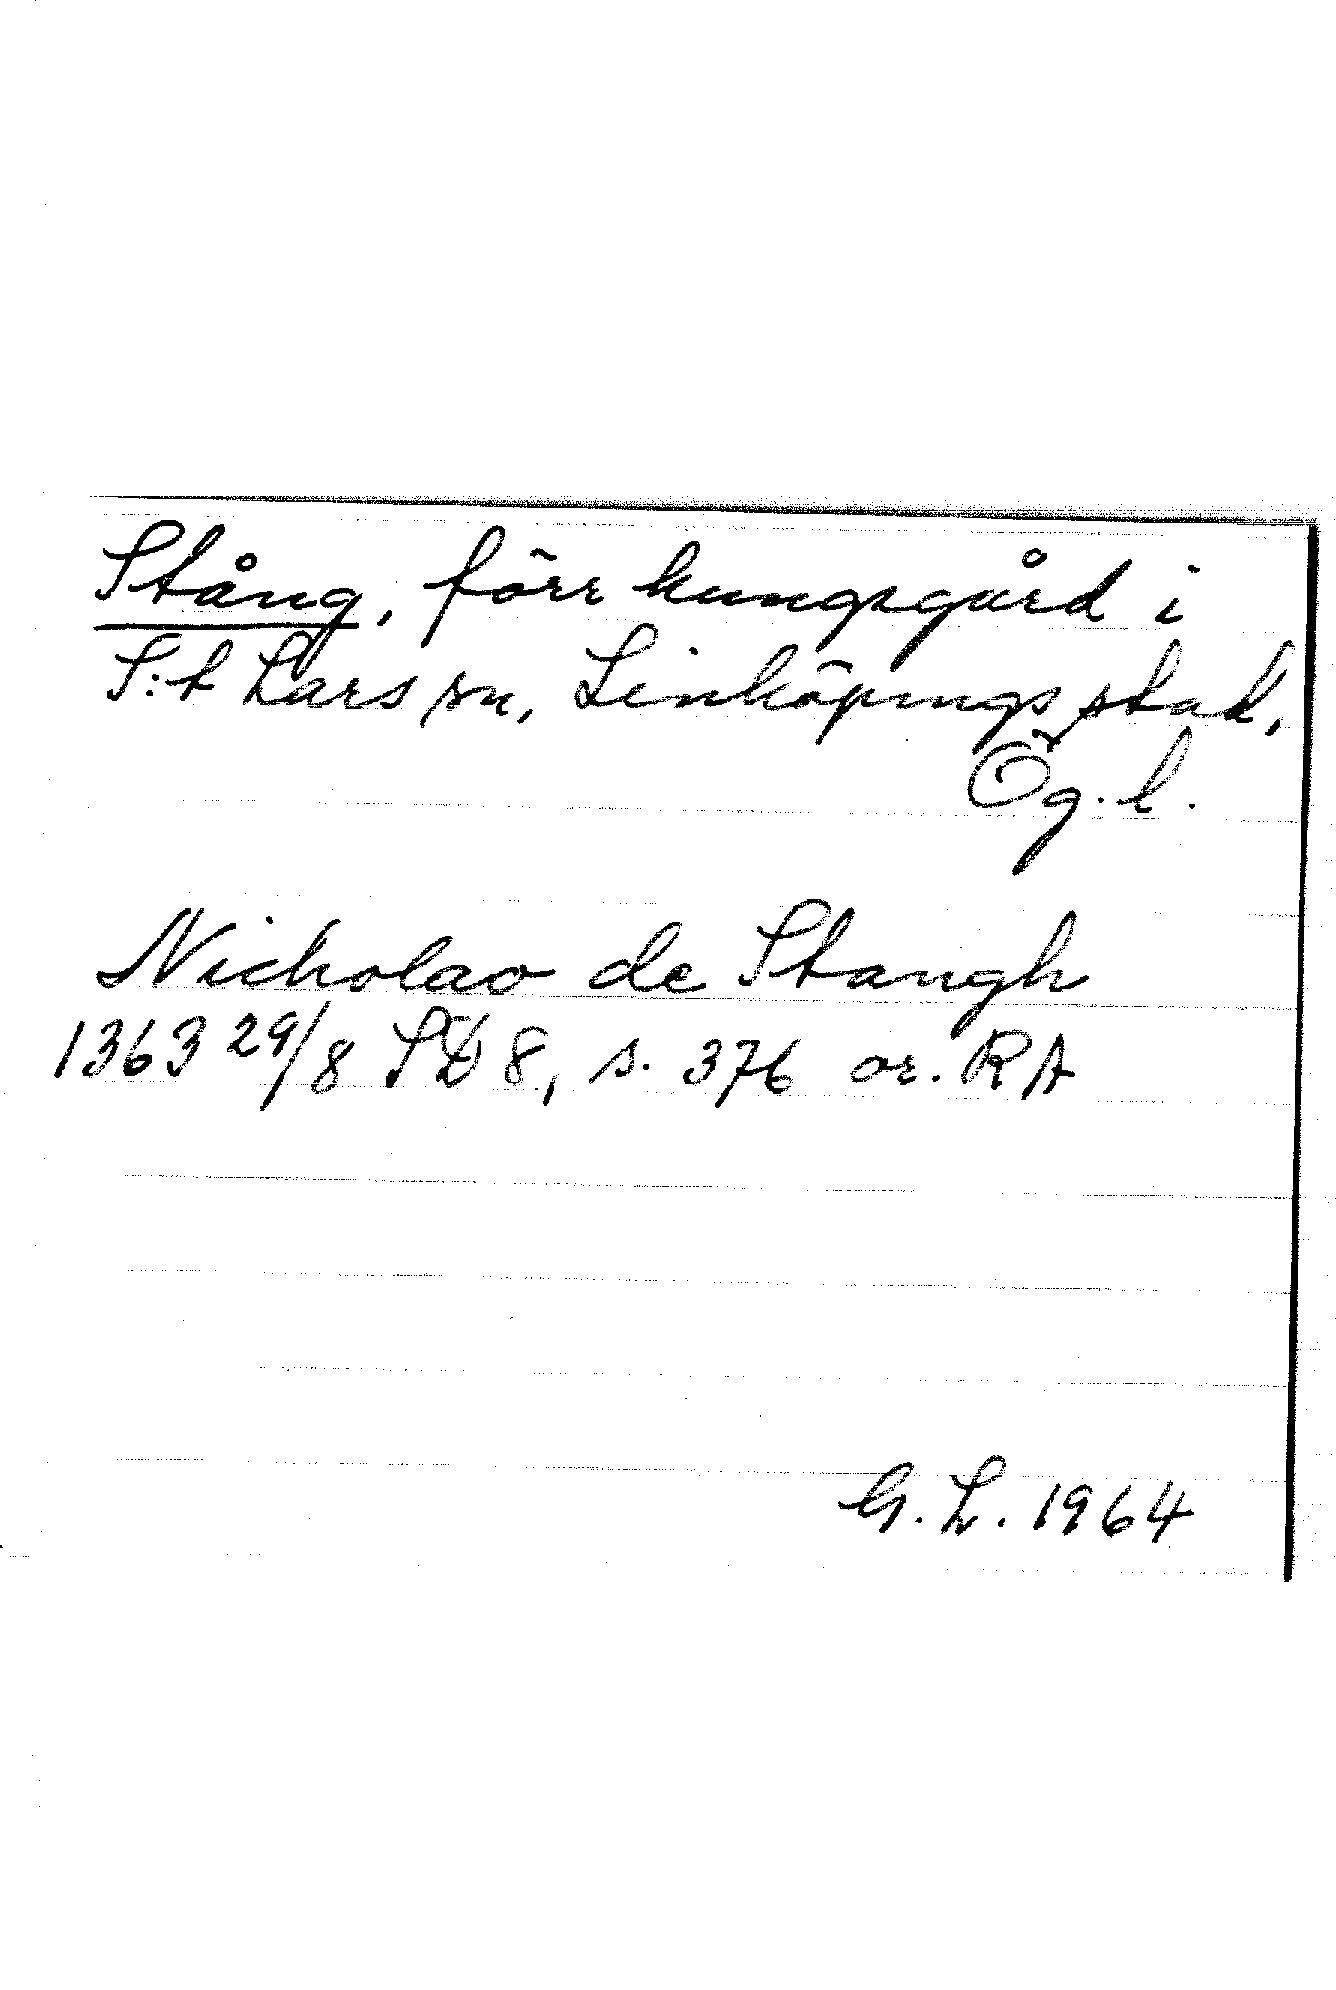 Stång, förr kungsgård i
S:t Lars sn, Linköpings stad,
Ög. l.
Nicholao de Stangh
1363 29/8 SD 8, s. 376 or. RA
G. L. 1964